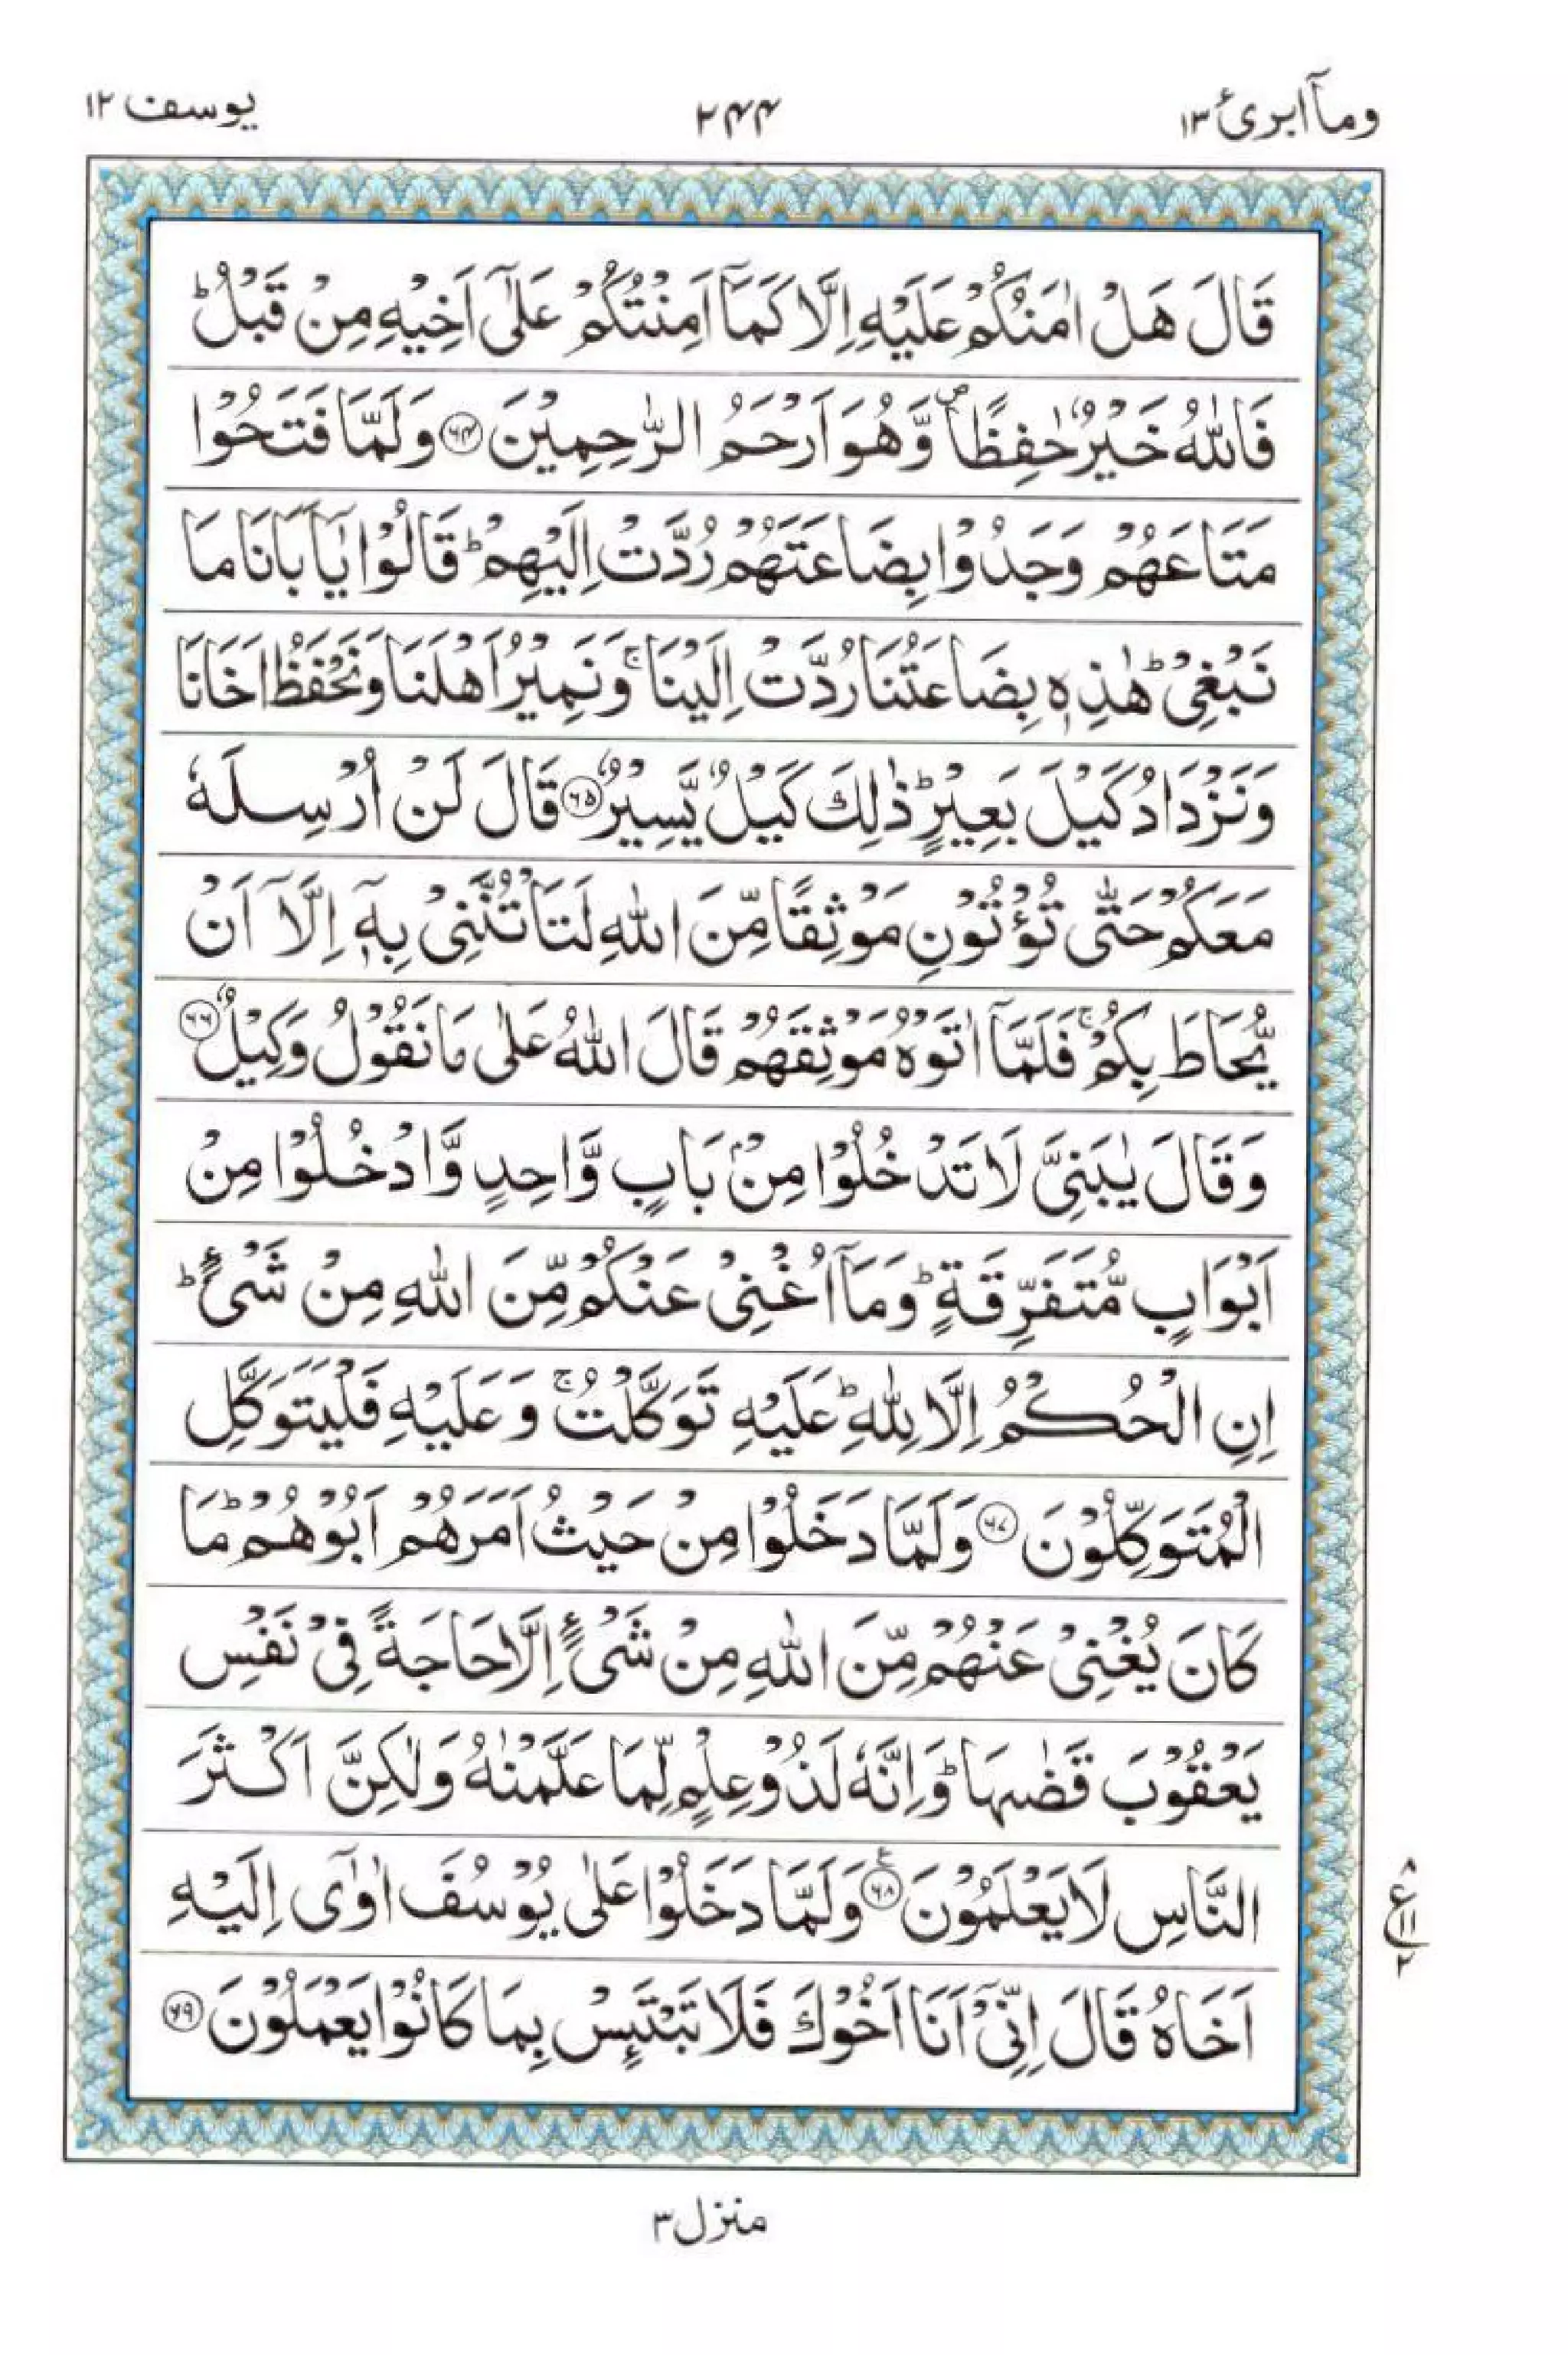 وماۤ ابرئ ١٣
٢٤٤
يوسف ١٢
قَالَ هَلْ اٰمَنُكُمْ عَلَيْهِ اِلَّا كَمَاۤ اَمِنْتُكُمْ عَلٰۤى اَخِيْهِ مِنْ قَبْلُ ؕ
فَاللّٰهُ خَيْرٌ حٰفِظًا ۪ وَّهُوَ اَرْحَمُ الرّٰحِمِيْنَ ﴿۶۴﴾ وَلَمَّا فَتَحُوْا
مَتَاعَهُمْ وَجَدُوْا بِضَاعَتَهُمْ رُدَّتْ اِلَيْهِمْ ؕ قَالُوْا يٰۤاَبَانَا مَا
نَبْغِيْ ؕ هٰذِهٖ بِضَاعَتُنَا رُدَّتْ اِلَيْنَا ۚ وَنَمِيْرُ اَهْلَنَا وَنَحْفَظُ اَخَانَا
وَنَزْدَادُ كَيْلَ بَعِيْرٍ ؕ ذٰلِكَ كَيْلٌ يَّسِيْرٌ ﴿۶۵﴾ قَالَ لَنْ اُرْسِلَهٗ
مَعَكُمْ حَتّٰى تُؤْتُوْنِ مَوْثِقًا مِّنَ اللّٰهِ لَتَاْتُنَّنِيْ بِهٖۤ اِلَّاۤ اَنْ
يُّحَاطَ بِكُمْ ۚ فَلَمَّاۤ اٰتَوْهُ مَوْثِقَهُمْ قَالَ اللّٰهُ عَلٰى مَا نَقُوْلُ وَكِيْلٌ ﴿۶۶﴾
وَقَالَ يٰبَنِيَّ لَا تَدْخُلُوْا مِنْۢ بَابٍ وَّاحِدٍ وَّادْخُلُوْا مِنْ
اَبْوَابٍ مُّتَفَرِّقَةٍ ؕ وَمَاۤ اُغْنِيْ عَنْكُمْ مِّنَ اللّٰهِ مِنْ شَيْءٍ ؕ
اِنِ الْحُكْمُ اِلَّا لِلّٰهِ ؕ عَلَيْهِ تَوَكَّلْتُ ۚ وَعَلَيْهِ فَلْيَتَوَكَّلِ
الْمُتَوَكِّلُوْنَ ﴿۶۷﴾ وَلَمَّا دَخَلُوْا مِنْ حَيْثُ اَمَرَهُمْ اَبُوْهُمْ ؕ مَا
كَانَ يُغْنِيْ عَنْهُمْ مِّنَ اللّٰهِ مِنْ شَيْءٍ اِلَّا حَاجَةً فِيْ نَفْسِ
يَعْقُوْبَ قَضٰىهَا ؕ وَاِنَّهٗ لَذُوْ عِلْمٍ لِّمَا عَلَّمْنٰهُ وَلٰكِنَّ اَكْثَرَ
النَّاسِ لَا يَعْلَمُوْنَ ﴿۶۸﴾ وَلَمَّا دَخَلُوْا عَلٰى يُوْسُفَ اٰوٰۤى اِلَيْهِ
اَخَاهُ قَالَ اِنِّيْۤ اَنَا اَخُوْكَ فَلَا تَبْتَىِٕسْ بِمَا كَانُوْا يَعْمَلُوْنَ ﴿۶۹﴾
٨
ع
١١
٢
منزل ٣